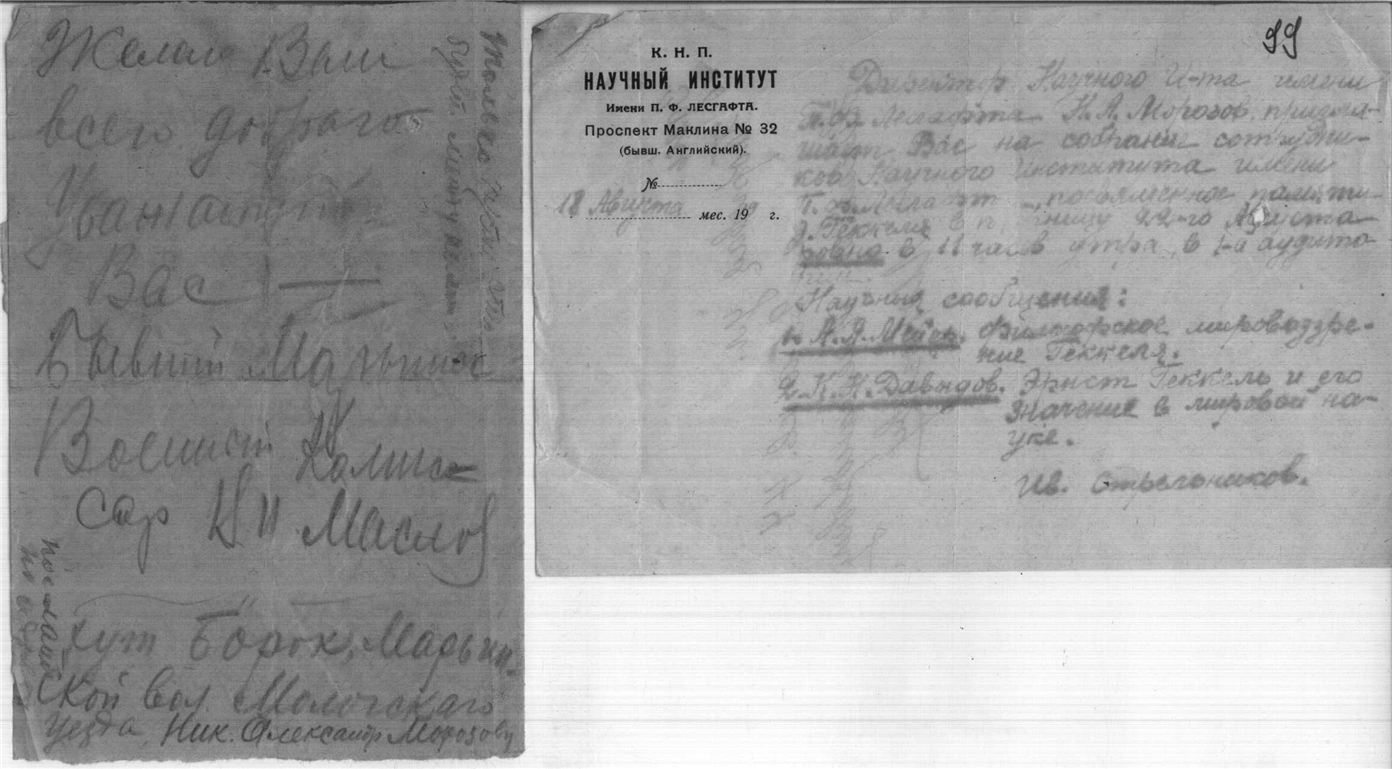 Желаю Вам
всего добраго
Уважающий
Вас
бывший
Военный Комис-
сар Маслов
хут Борок, Марьин-
ской вол Мологскаго
уезда, Ник. Александр Морозову
только чтобы
99
К. Н. П.
НАУЧНЫЙ ИНСТИТУТ
Имени П. Ф. ЛЕСГАФТА.
Проспект Маклина № 32
(бывш. Английский).
№
18 Августа мес. 19 г.
Директор Научного И-та имени
П. Ф. Лесгафта Н. А. Морозов пригла-
шает Вас на собрание сотрудни-
ков Научного Института имени
П. Ф. Лесгафта, посвященное памяти
Э. Геккеля в пятницу 22-го Августа
ровно в 11 часов утра, в 1-й аудито
Научные сообщения:
1. А. А. Мейер. Философское мировоззре-
ние Геккеля.
2. К. Н. Давыдов. Эрнст Геккель и его
значение в мировой на-
уке.
Ив. Стрельников.